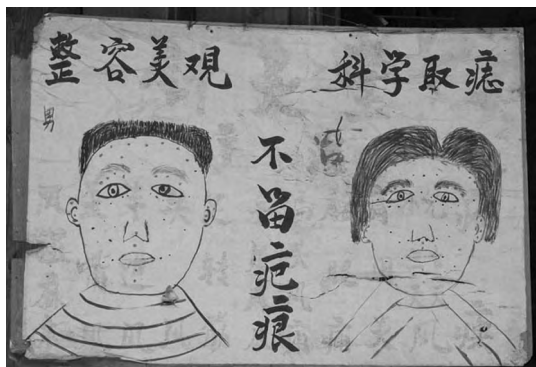 整容美观
科学取痣
男
不留疤痕